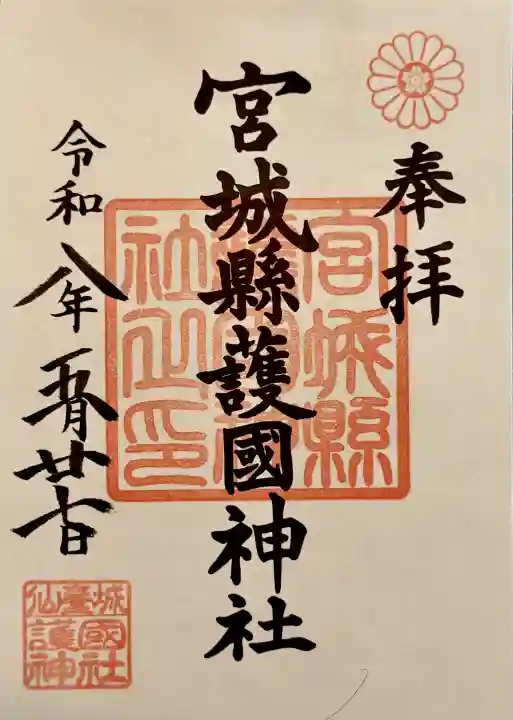 奉拝
宮城縣護國神社
宮城縣
護國神
社之印
令和八年五月廿七日
仙臺城
護國
神社